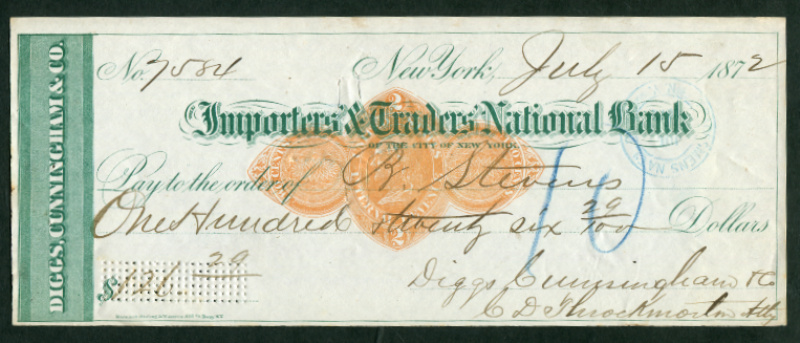 DIGGS, CUNNINGHAM & CO.
No. 7584 New York, July 15 1872
Importers' & Traders' National Bank
OF THE CITY OF NEW YORK.
Pay to the order of R. Stevens
One Hundred & twenty six 29/100 Dollars
$126 29
10
Diggs, Cunningham & Co
C D Throckmorton Atty